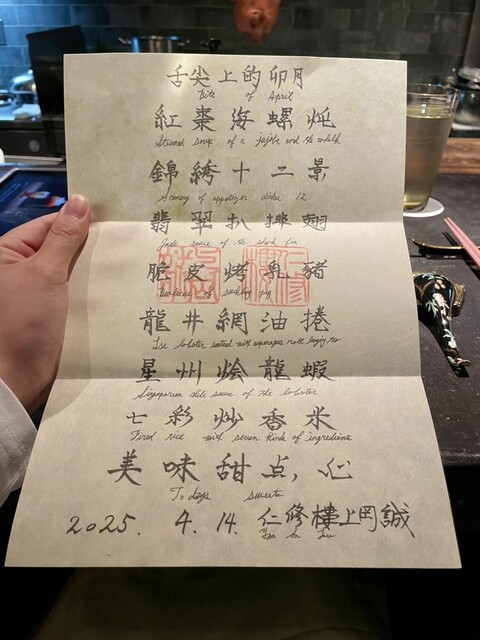 舌尖上的卯月
Bite of April
紅棗海螺炖
Steamed soup of a jujube and the whelk
錦綉十二景
Scenery of appetizer dishe 12.
翡翠扒排翅
Jade sauce of the shark fin
脆皮烤乳豬
Barbecue of suckling pig
龍井網油捲
lobster with asparagus roll
星州烩龍蝦
Singaporean chili sauce of the lobster
七彩炒香米
Fired rice with seven kinds of ingredients
美味甜点心
Todays sweets
2025. 4. 14. 仁修樓上岡誠